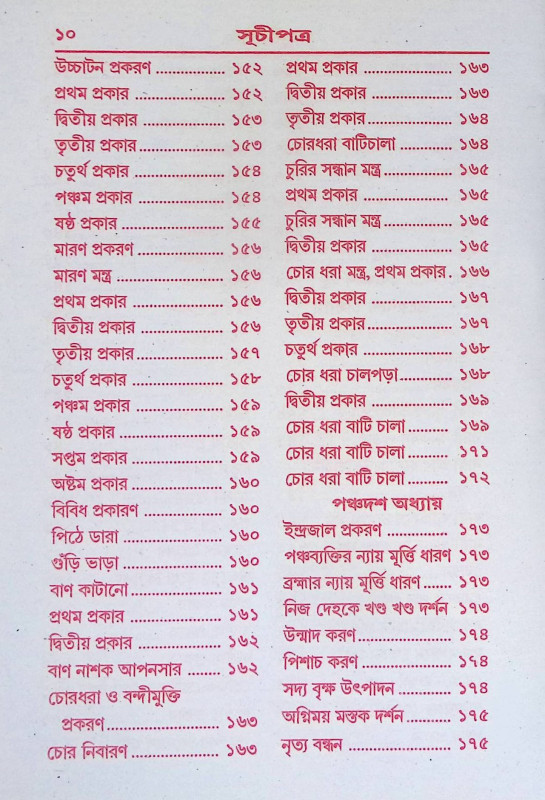 ১০ সূচীপত্র
উচ্চাটন প্রকরণ ................ ১৫২
প্রথম প্রকার .................... ১৫২
দ্বিতীয় প্রকার .................. ১৫৩
তৃতীয় প্রকার ................... ১৫৩
চতুর্থ প্রকার .................... ১৫৪
পঞ্চম প্রকার ................... ১৫৪
ষষ্ঠ প্রকার ...................... ১৫৫
মারণ প্রকরণ ................... ১৫৬
মারণ মন্ত্র ....................... ১৫৬
প্রথম প্রকার .................... ১৫৬
দ্বিতীয় প্রকার .................. ১৫৬
তৃতীয় প্রকার ................... ১৫৭
চতুর্থ প্রকার .................... ১৫৮
পঞ্চম প্রকার ................... ১৫৯
ষষ্ঠ প্রকার ...................... ১৫৯
সপ্তম প্রকার .................... ১৫৯
অষ্টম প্রকার .................... ১৬০
বিবিধ প্রকারণ .................. ১৬০
পিঠে ডারা ...................... ১৬০
গুঁড়ি ভাড়া ....................... ১৬০
বাণ কাটানো .................... ১৬১
প্রথম প্রকার .................... ১৬১
দ্বিতীয় প্রকার .................. ১৬২
বাণ নাশক আপনসার ........ ১৬২
চোরধরা ও বন্দীমুক্তি
প্রকরণ ........................ ১৬৩
চোর নিবারণ .................... ১৬৩
প্রথম প্রকার .................... ১৬৩
দ্বিতীয় প্রকার .................. ১৬৩
তৃতীয় প্রকার ................... ১৬৪
চোরধরা বাটিচালা .............. ১৬৪
চুরির সন্ধান মন্ত্র ................ ১৬৫
প্রথম প্রকার .................... ১৬৫
চুরির সন্ধান মন্ত্র ................ ১৬৫
দ্বিতীয় প্রকার .................. ১৬৫
চোর ধরা মন্ত্র, প্রথম প্রকার . ১৬৬
দ্বিতীয় প্রকার .................. ১৬৭
তৃতীয় প্রকার ................... ১৬৭
চতুর্থ প্রকার .................... ১৬৮
চোর ধরা চালপড়া .............. ১৬৮
দ্বিতীয় প্রকার .................. ১৬৯
চোর ধরা বাটি চালা ........... ১৬৯
চোর ধরা বাটি চালা ........... ১৭১
চোর ধরা বাটি চালা ........... ১৭২
পঞ্চদশ অধ্যায়
ইন্দ্রজাল প্রকরণ ............... ১৭৩
পঞ্চব্যক্তির ন্যায় মূর্ত্তি ধারণ ১৭৩
ব্রহ্মার ন্যায় মূর্ত্তি ধারণ ....... ১৭৩
নিজ দেহকে খণ্ড খণ্ড দর্শন ১৭৩
উন্মাদ করণ .................... ১৭৪
পিশাচ করণ .................... ১৭৪
সদ্য বৃক্ষ উৎপাদন .............. ১৭৪
অগ্নিময় মস্তক দর্শন ............ ১৭৫
নৃত্য বন্ধন ........................ ১৭৫